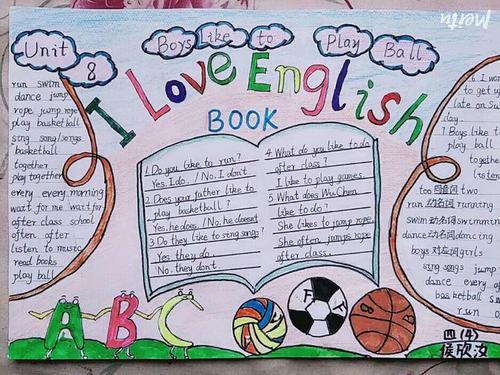 Unit 8
Boys Like to Play Ball
I Love English
BOOK
run swim
dance jump
rope jump rope
play basketball
sing song/songs
basketball
together
play together
every every morning
wait for me wait for
after class school
often after
listen to music
read books
play ball
1. Do you like to run?
Yes, I do. / No, I don't.
2. Does your father like to
play basketball?
Yes, he does. / No, he doesn't
3. Do they like to sing songs?
Yes they do.
No. they don't.
4. What do you like to do
after class?
I like to play games.
5. What does Wu Chen
like to do?
She likes to jump rope.
She often jumps rope
after class.
6. I wa
to get u
late on Su
day.
7. Boys like t
play ball
together
liste
too 同音词 two
run 动名词 running
swim 动名词 swimmin
dance 动名词 dancing
boys 对应词 girls
sing songs jump
dance every
basketball sw
run
A B C
四(4)
侯欣汝